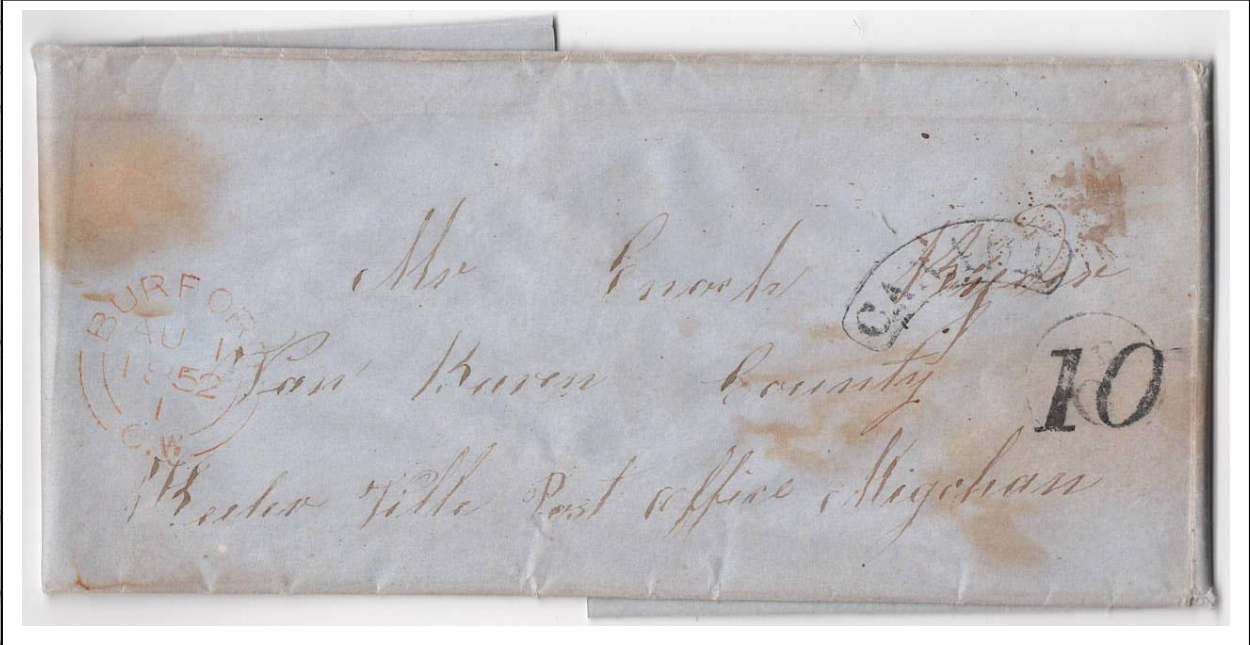 BURFOR
AU 1
1852
1
C.W.
CANADA
10
Mr Enoch
Van Buren County
Keeler Ville Post office Migchan